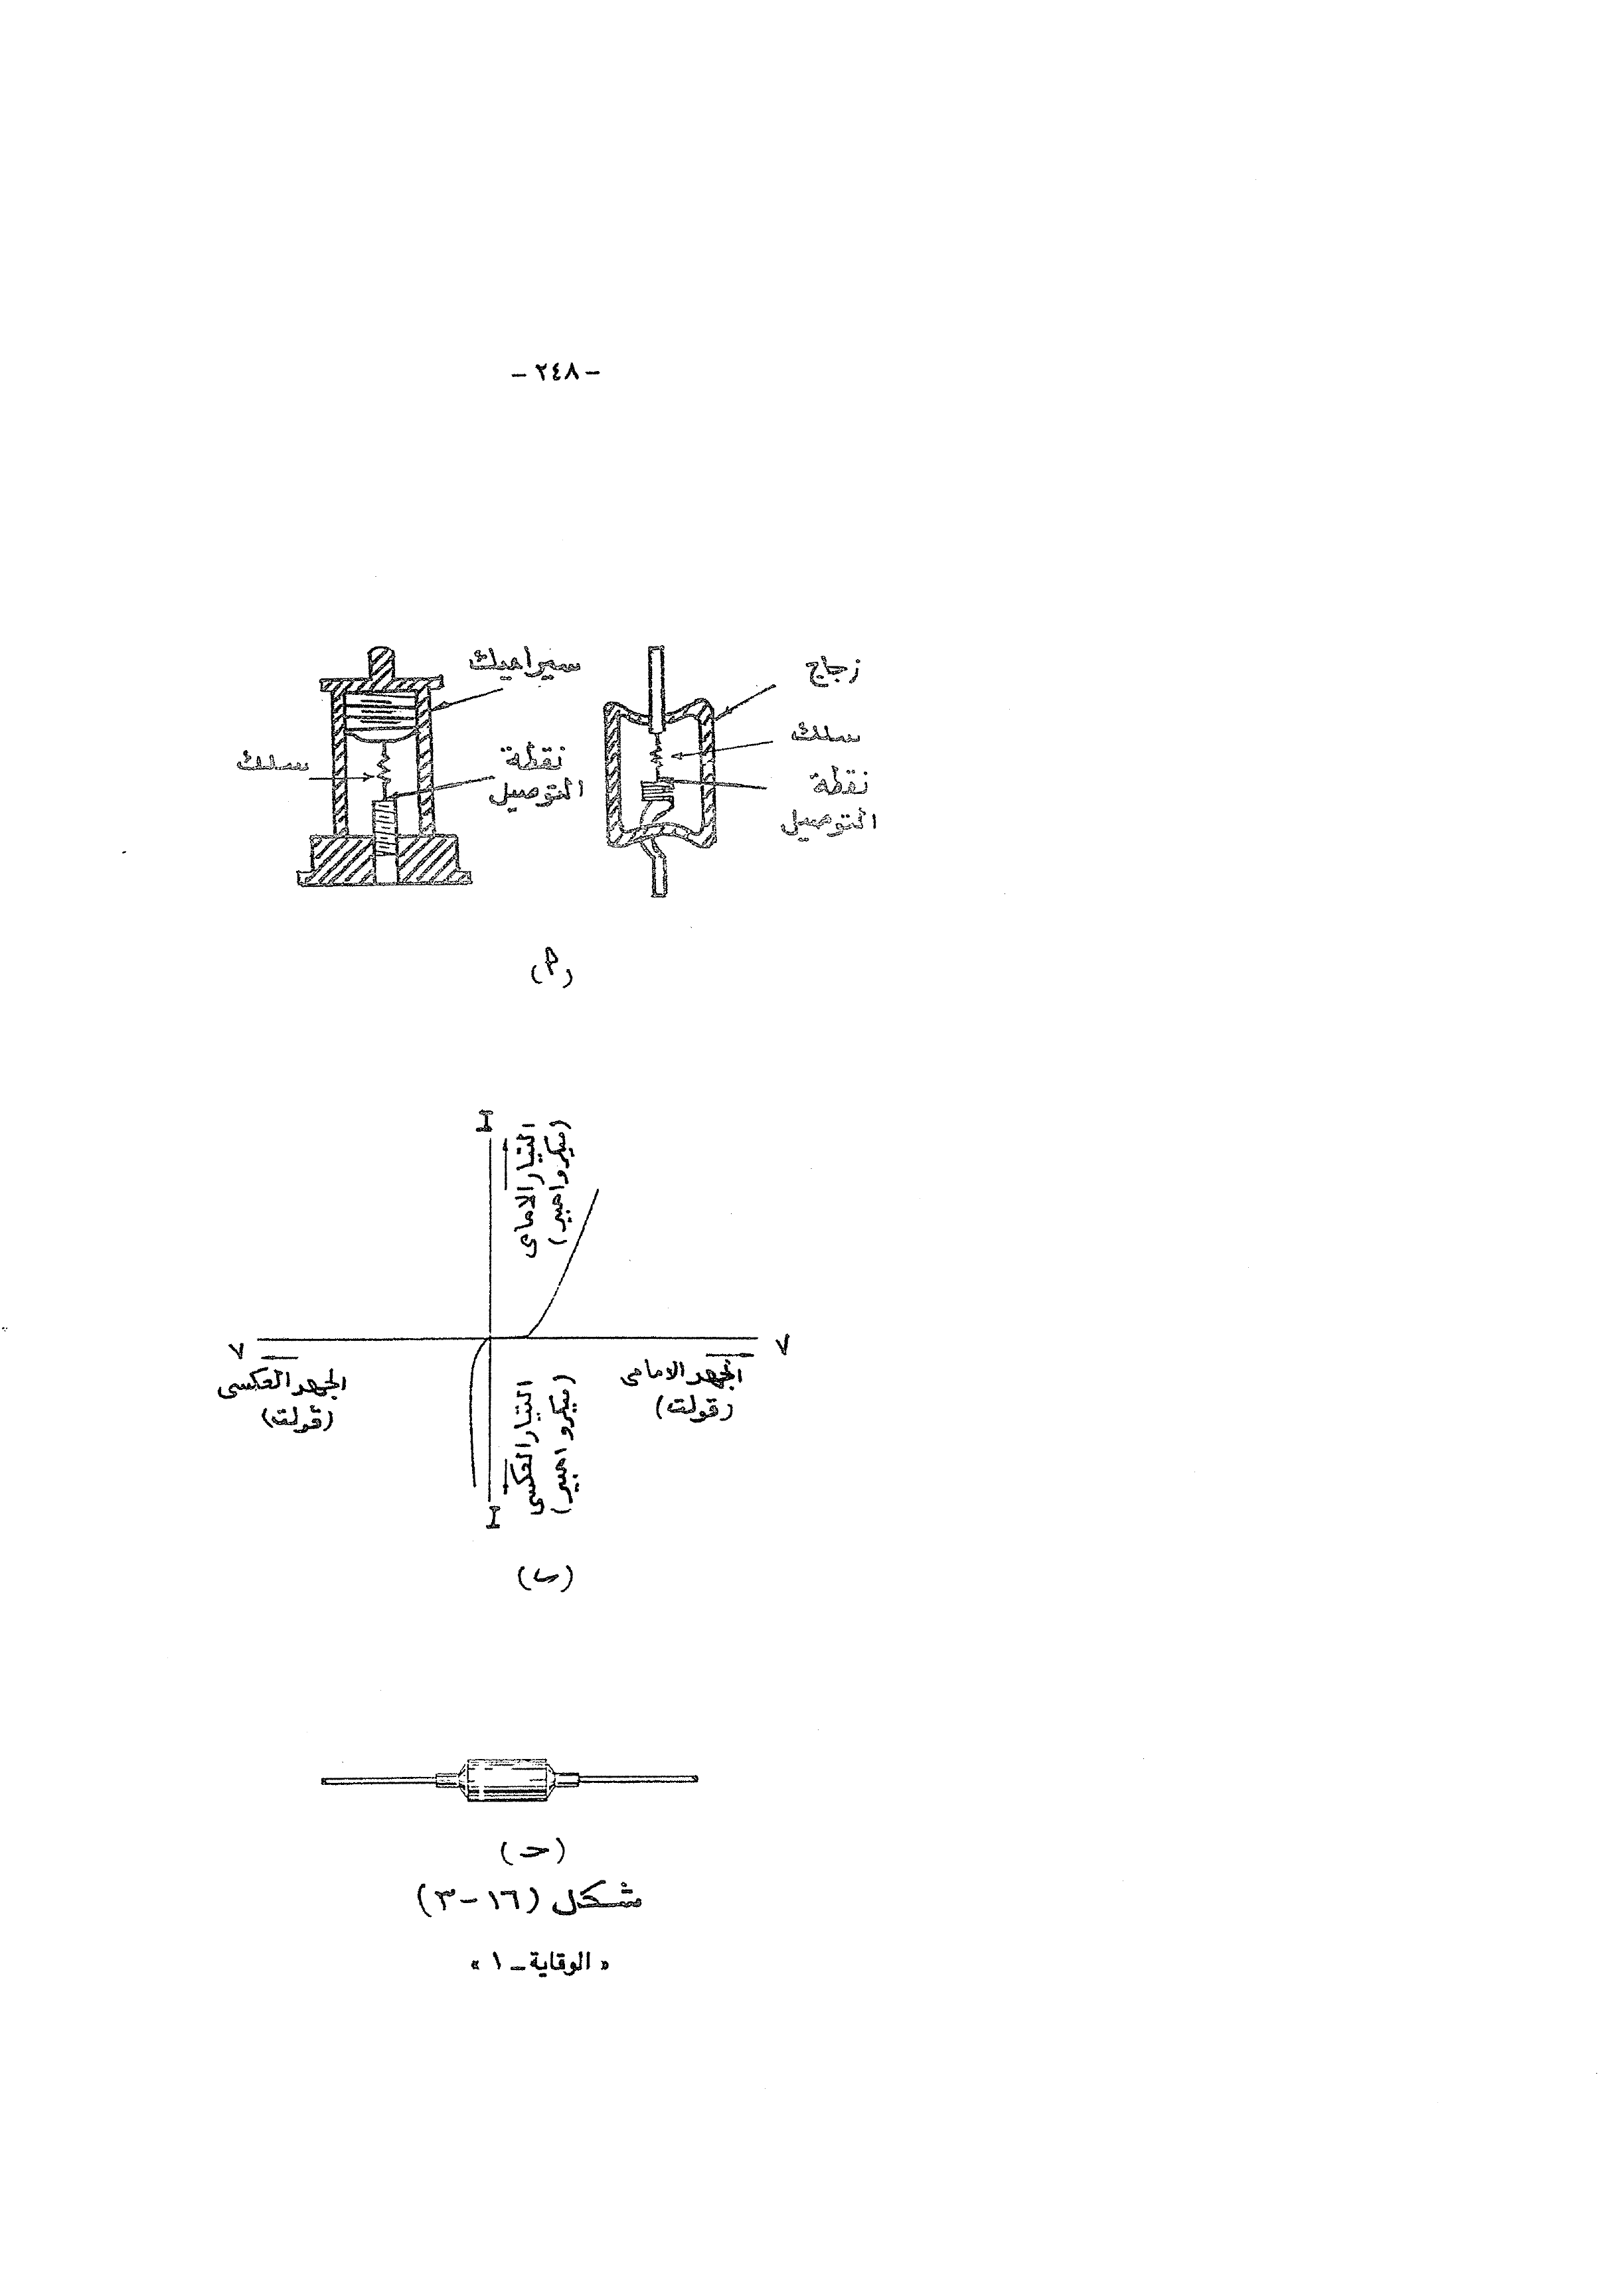 - ٢٤٨ -
زجاج
سلك
نقطة
التوصيل
سيراميك
نقطة
التوصيل
سلك
(أ)
I
التيار الامامى
(ميكروامبير)
V
الجهد الامامى
(ڤولت)
V
الجهد العكسى
(ڤولت)
التيار العكسى
(ميكروامبير)
I
(ب)
(حـ)
شكل (١٦-٣)
« الوقاية - ١ »